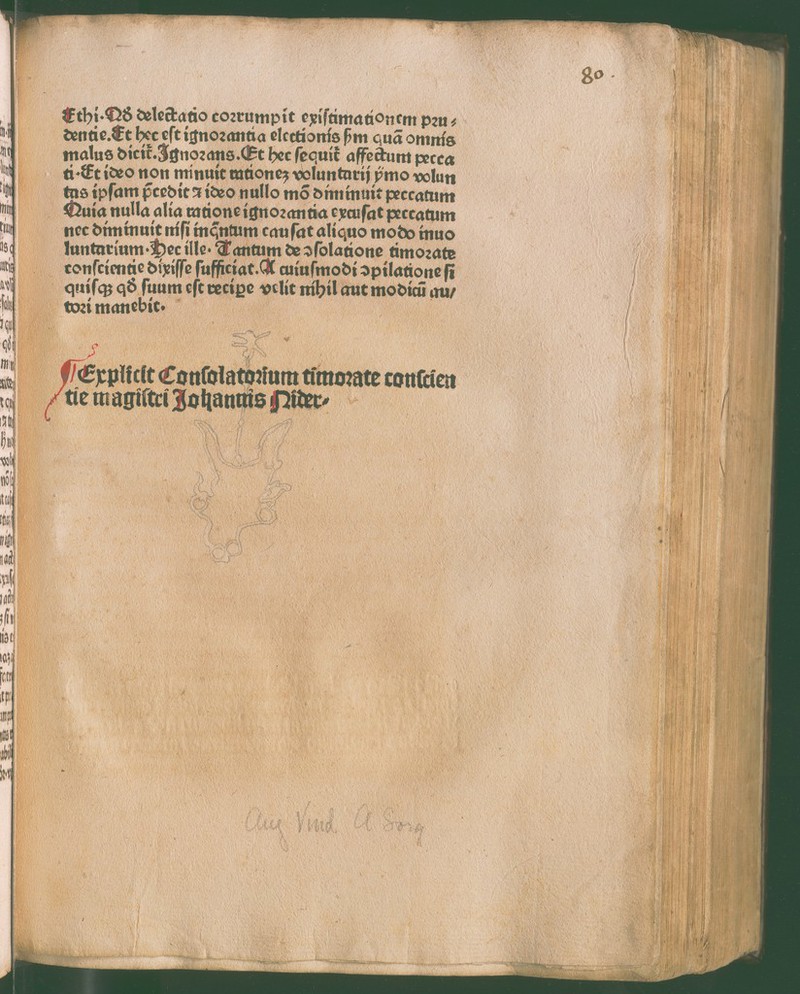 80.
Ethi·Qđ delectatio corrumpit existimationem pru⸗
dentie.Et hec est ignorantia electionis ẜm quã omnis
malus dicit̃.Ignorans.Et hec sequit̃ affectum pecca
ti·Et ideo non minuit rationeꝫ voluntarij p̃mo volun
tas ipsam p̃cedit ⁊ ideo nullo mõ diminuit peccatum
Quia nulla alia ratione ignorantia excusat peccatum
nec diminuit nisi inq̃ntum causat aliquo modo inuo
luntarium·Hec ille· Tantum de ↄsolatione timorate
conscientie dixisse sufficiat.A cuiusmodi ↄpilatione si
quisqꝫ qđ suum est recipe velit nihil aut modicũ au/
tori manebit·
¶Explicit Consolatorium timorate conscien
tie magistri Johannis Nider⸗
Aug Vind. A Sorg